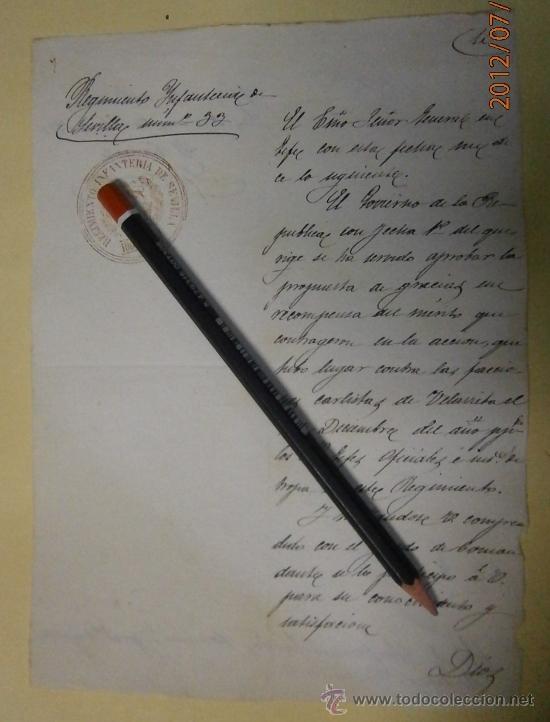 2012/07/
Regimiento Infanteria de
Sevilla num.º 33
REGIMIENTO INFANTERIA DE SEVILLA
El Exmo Señor General en
Jefe con esta fecha me di-
ce lo siguiente.
El Govierno de la Re-
publica con fecha 1º del que
rige se ha servido aprobar la
propuesta de gracias en
recompensa del mérito que
contrageron en la accion, que
tubo lugar contra las faccio
carlistas de Velavieta el
Diciembre del año
los Jefes Oficiales é
tropa este Regimiento.
Y V. compren
dido con el de Coman
dante lo á V.
para su y
satisfacion
Dios
© todocoleccion
www.todocoleccion.net